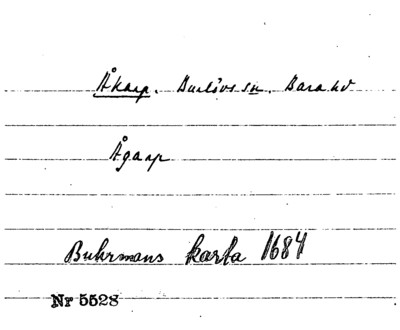 Åkarp. Burlövs sn. Bara hd
Ågarp
Buhrmans karta 1684
Nr 5528